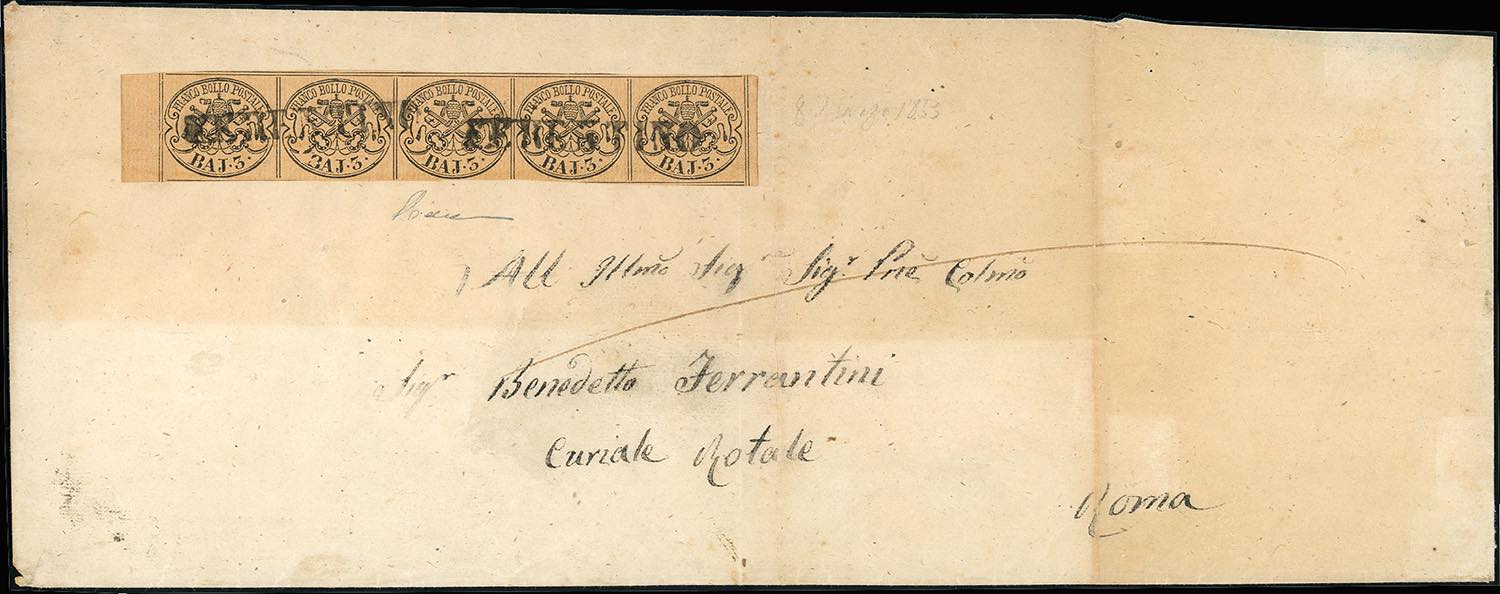 FRANCO BOLLO POSTALE FRANCO BOLLO POSTALE FRANCO BOLLO POSTALE FRANCO BOLLO POSTALE FRANCO BOLLO POSTALE
BAJ·3· BAJ·3· BAJ·3· BAJ·3· BAJ·3·
1853
All Illmo Sigr Sigr Pne Colmo
Sigr Benedetto Ferrantini
Curiale Rotale
Roma